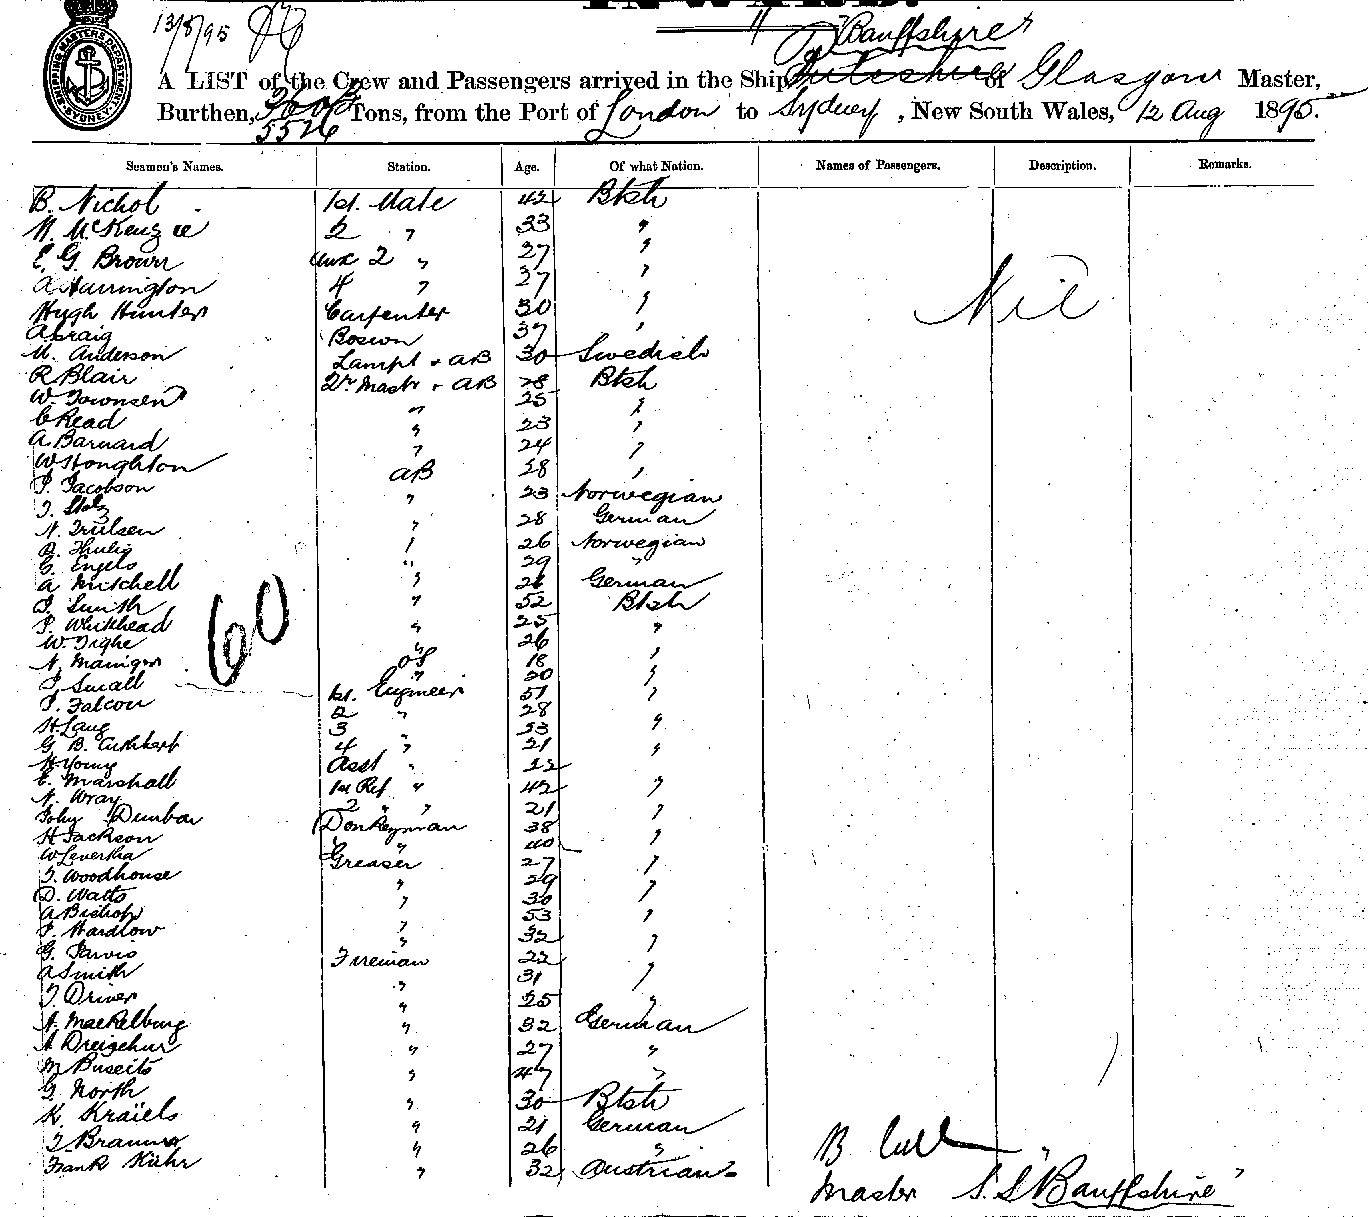 INWARD.
13/8/95
"Banffshire"
A LIST of the Crew and Passengers arrived in the Ship of Glasgow Master,
Burthen, Tons, from the Port of London to Sydney, New South Wales, 12 Aug 1895.
5526
SHIPPING MASTERS DEPARTMENT SYDNEY
Seamen's Names. Station. Age. Of what Nation. Names of Passengers. Description. Remarks.
B. Nichol 1st. Mate 42 Btsh
McKenzie 2 " 33 "
E. G. Brown 2 " 27 "
A Harrington 4 " 27 "
Nil
Hugh Hunter Carpenter 30 "
A Craig Boswn 37 "
M. Anderson Lampt + AB 30 Swedish
R Blair Qr Mastr + AB 28 Btsh
W. Townsend " 25 "
C Read " 23 "
A. Barnard " 24 "
W Houghton AB 28 "
P. Jacobson " 23 Norwegian
" 28 German
N. Trulsen " 26 Norwegian
Thulig " 29 "
G. Engels " German
A Mitchell " 52 Btsh
J. Smith " 25 "
P. Whitehead " 26 "
W. Tighe " 18 "
OS 20
J. Small 1st. Engineer 51 "
J. Falcon 2 " 28
H. Lang 3 33 "
G B. Cuthbert 4 " 21 "
H Young Asst "
E. Marshall 1st Ref " 42 "
N. Wray 2 " 21 "
John Dunbar Donkeyman 38 "
H Jackson " 40
W Levertha Greaser 27 "
J. Woodhouse " 29 "
D. Watts " 30
A Bishop " 53 "
J. Wardlow " 32 "
G. Jarvis Fireman 22
A Smith " 31 "
J Driver " 25 "
N. Mackelburg " 32 German
" 27 "
M " 47 "
G. North " 30 Btsh
K. Kraiels " 21 German
" 26 "
Frank Kühr " 32 Austrian
60
B
Master S.S "Banffshire"